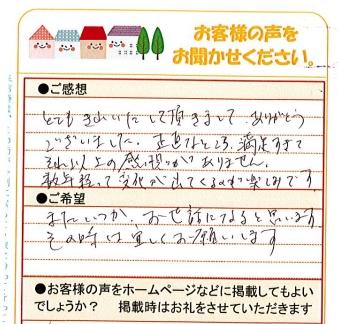 お客様の声を
お聞かせください。
●ご感想
とてもきれいにして頂きまして、ありがとう
ございました。正直なところ、満足すぎて
それ以上の感想がありません。
数年経って変化が出てくるのが楽しみです
●ご希望
またいつか、お世話になると思います
その時は宜しくお願いします
●お客様の声をホームページなどに掲載してもよい
でしょうか？　掲載時はお礼をさせていただきます